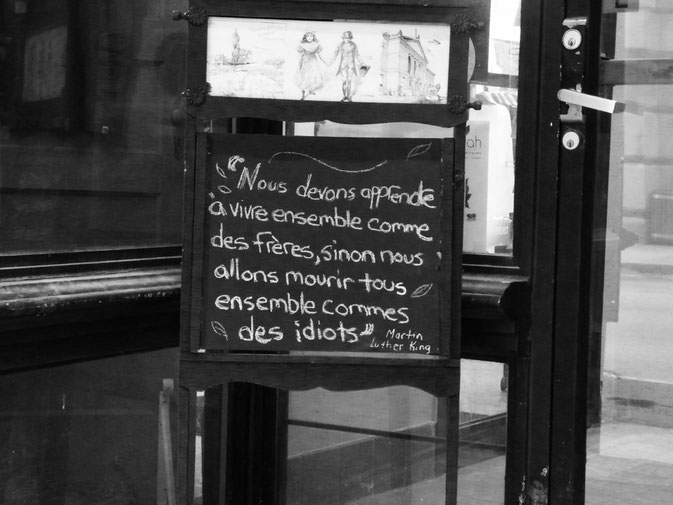 "Nous devons apprendre
à vivre ensemble comme
des frères, sinon nous
allons mourir tous
ensemble commes
des idiots"
Martin
Luther King